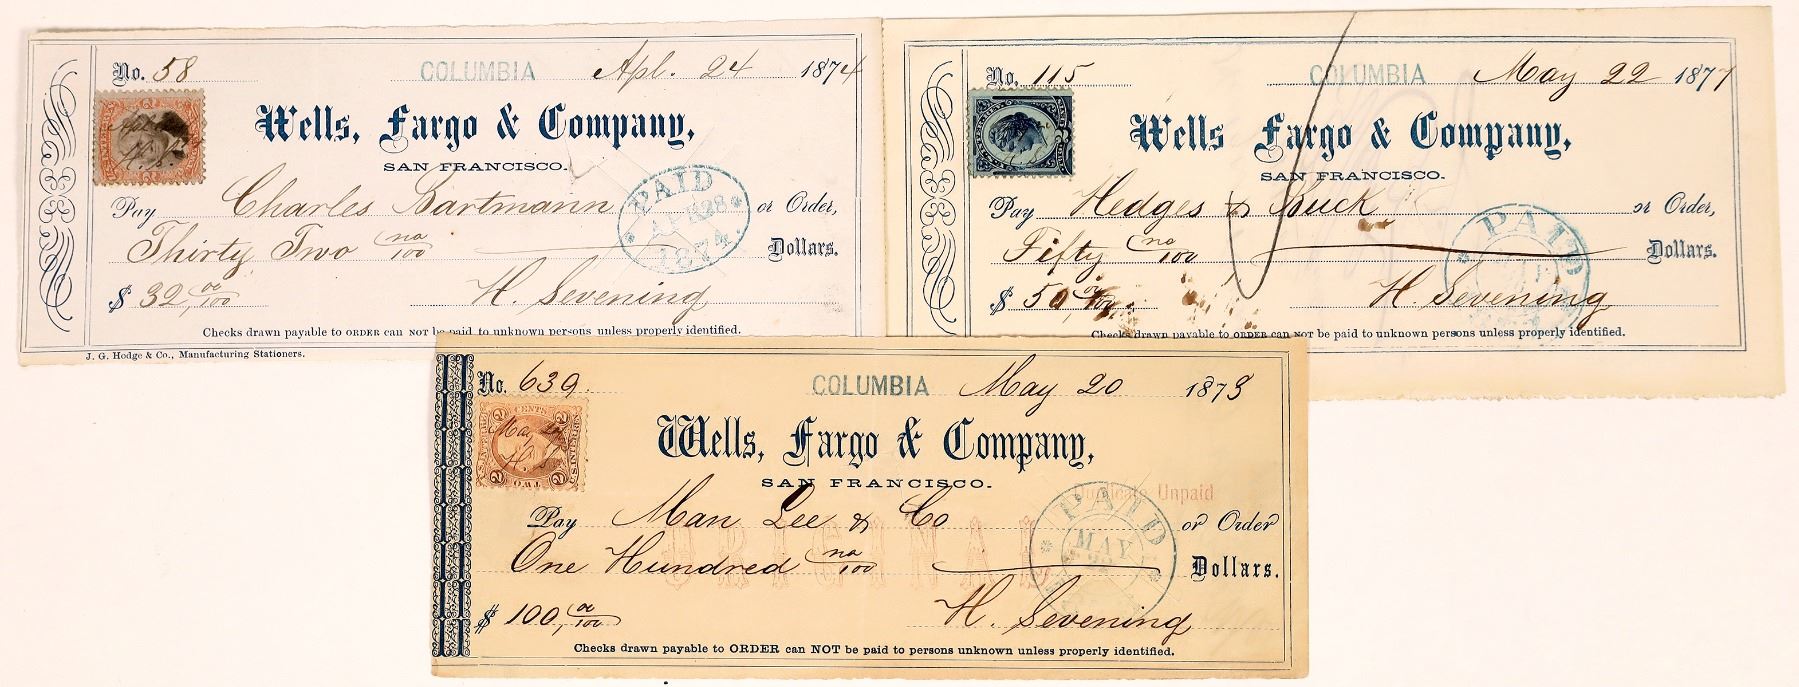 No. 58 COLUMBIA Apl. 24 1874
Wells, Fargo & Company,
SAN FRANCISCO.
Pay Charles Bartmann or Order,
Thirty Two no/100 Dollars.
$ 32 00/100 H. Sevening
PAID
APR 28
1874.
Checks drawn payable to ORDER can NOT be paid to unknown persons unless properly identified.
J. G. Hodge & Co., Manufacturing Stationers.
No. 115 COLUMBIA May 22 1877
Wells Fargo & Company,
SAN FRANCISCO.
Pay Hedges & Buck or Order,
Fifty no/100 Dollars.
$ 50, 00/100 H. Sevening
PAID
Checks drawn payable to ORDER can NOT be paid to unknown persons unless properly identified.
No. 639. COLUMBIA May 20 1873
2 CENTS 2
May 20
H. S.
TWO
Wells, Fargo & Company,
SAN FRANCISCO.
Duplicate Unpaid
Pay Man Lee & Co or Order
ORIGINAL
One Hundred no/100 Dollars.
$ 100, 00/100 H. Sevening
PAID
MAY
22
Checks drawn payable to ORDER can NOT be paid to persons unknown unless properly identified.